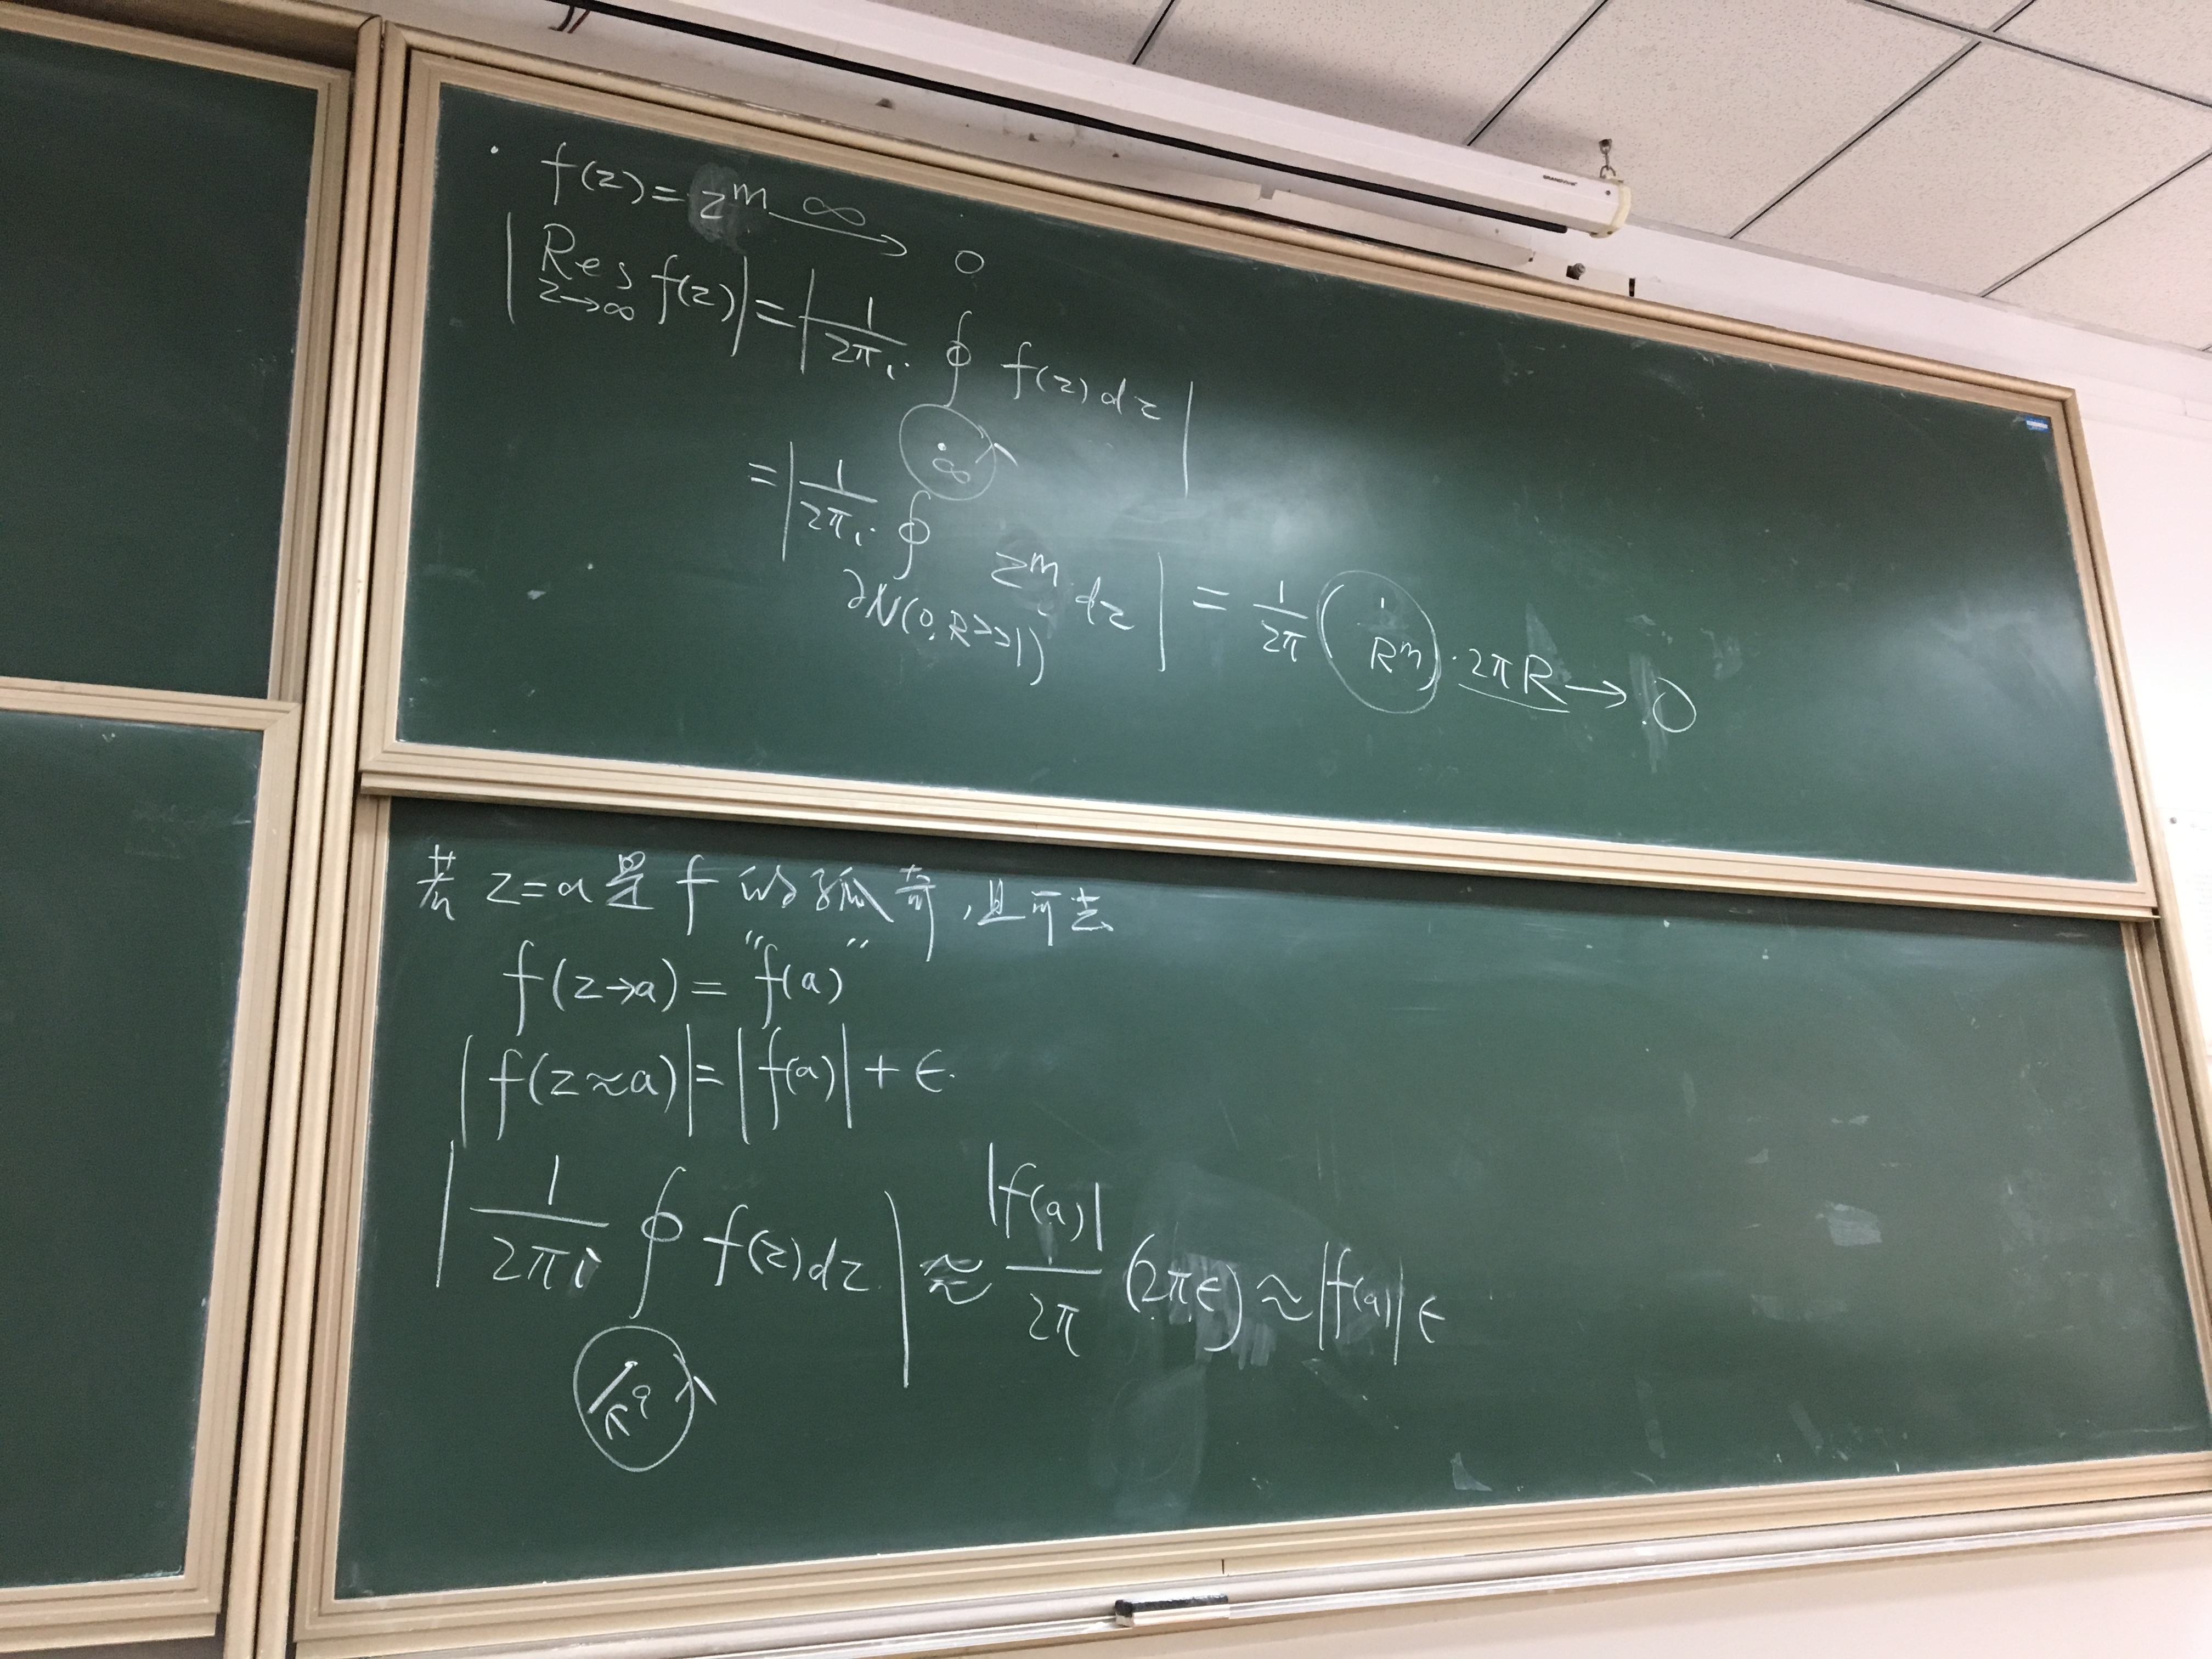 · f(z) = z^m —∞→ 0
| Res_{z→∞} f(z) | = | 1/2πi ∮ f(z) dz |
∞
= | 1/2πi ∮_{∂N(0, R>>1)} z^m dz | = 1/2π (1/R^m) · 2πR → 0
若 z=a 是 f 的孤奇，且可去
f(z→a) = "f(a)"
|f(z≈a)| = |f(a)| + ϵ.
| 1/2πi ∮ f(z)dz | ≈ |f(a)|/2π (2πϵ) ≈ |f(a)| ϵ
a